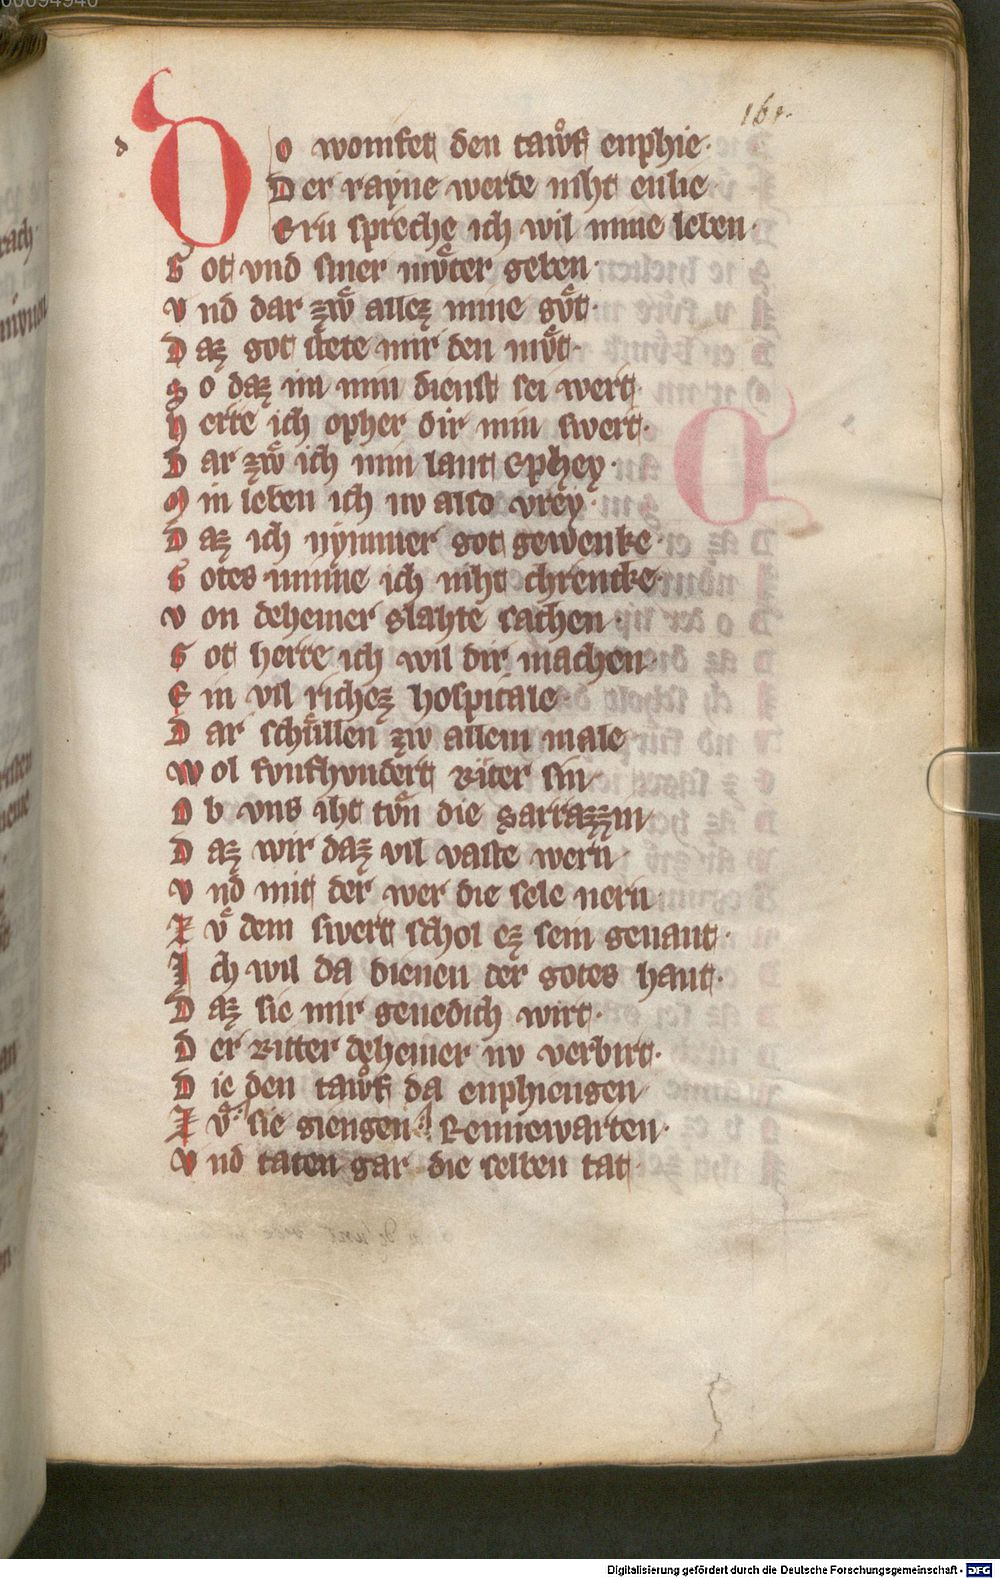 161.
Do womfet den tawͦf enphie·
Der rayne werde niht enlie
Ern spreche ich wil mine leben·
Got vnd siner mvͦter geben·
Vnd dar zwͦ allez mine gvͦt·
Daz got stete mir den mvͦt·
So daz im min dienst sei wert·
Herre ich opher dir min swert·
Dar zwͦ ich min lant Ephey·
Min leben ich nv also vrey·
Daz ich nymmer got gewenke·
Gotes minne ich niht chrencke·
Von deheiner slahte sachen·
Got herre ich wil dir machen·
Ein vil richez hospitale
Dar schuͤllen zw allem male
Wol fvnfhvndert Riter sin
Ob vns iht tvͦn die Sarrazzin
Daz wir daz vil vaste wern·
Vnd mit der wer die sele nern
Zvͦ dem swert schol ez sein genant·
Ich wil da dienen der gotes hant·
Daz sie mir genedich wirt·
Der Ritter deheiner nv verbirt·
Die den tawͦf da enphiengen
Zvͦ· sie giengen Rennewarten·
Vnd taten gar die selben tat·
Digitalisierung gefördert durch die Deutsche Forschungsgemeinschaft - DFG